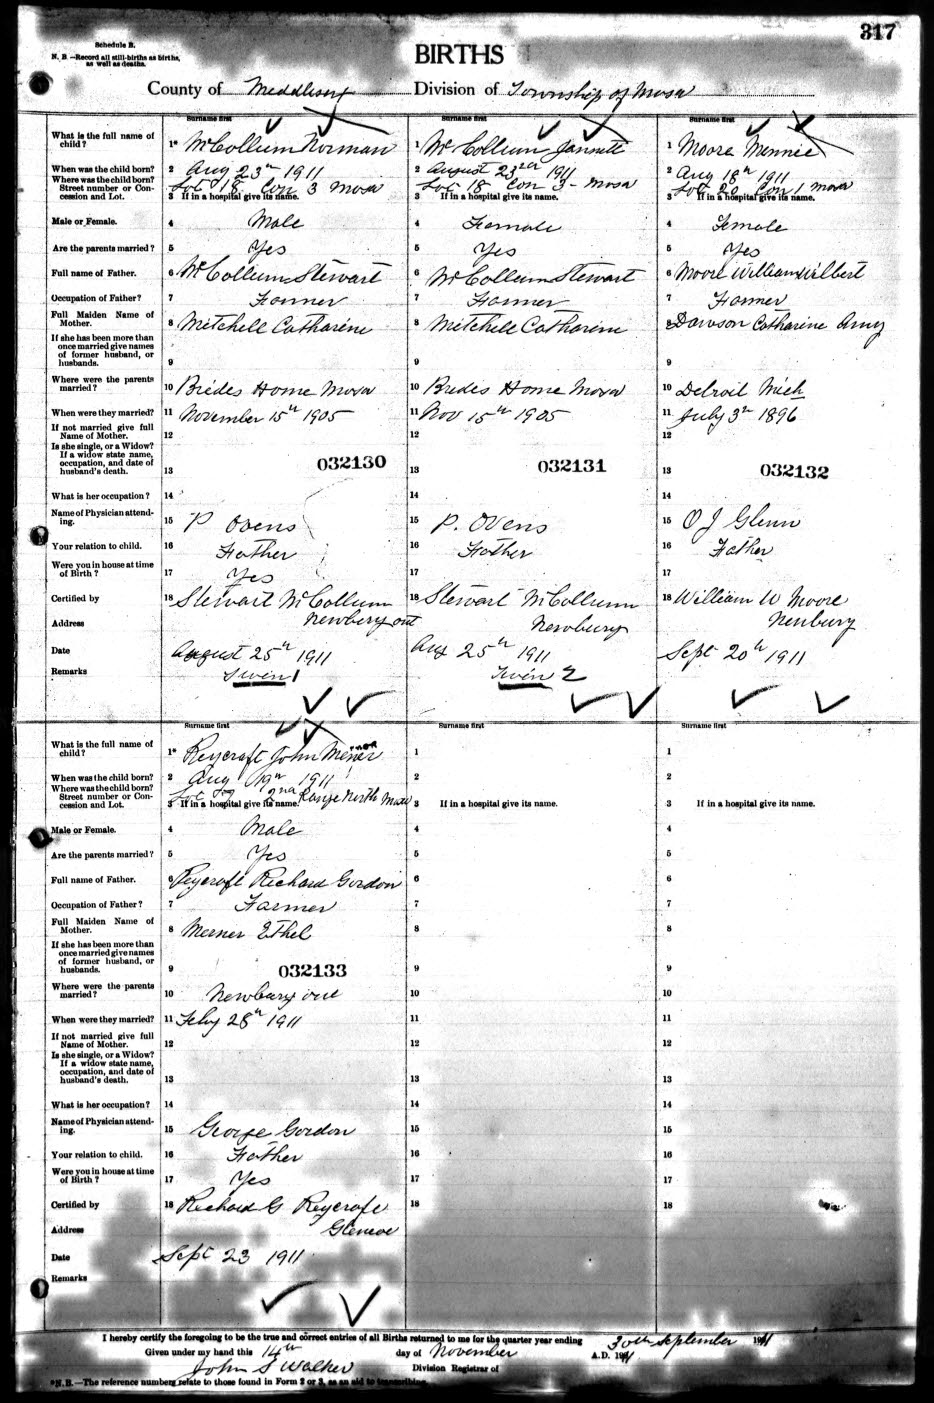 317
Schedule B.
N. B.—Record all still-births as births,
as well as deaths.
BIRTHS
County of Middlesex Division of Township of Mosa
Surname first Surname first Surname first
What is the full name of child? 1* McCollum Norman 1 McCollum Jannett 1 Moore Minnie
When was the child born? 2 Aug 23rd 1911 2 August 23rd 1911 2 Aug 18th 1911
Where was the child born? Street number or Concession and Lot. Lot 18 Con 3 Mosa Lot 18 Con 3 - Mosa Lot 20 Con 1 Mosa
3 If in a hospital give its name. 3 If in a hospital give its name. 3 If in a hospital give its name.
Male or Female. 4 Male 4 Female 4 Female
Are the parents married? 5 Yes 5 Yes 5 Yes
Full name of Father. 6 McCollum Stewart 6 McCollum Stewart 6 Moore William Wilbert
Occupation of Father? 7 Farmer 7 Farmer 7 Farmer
Full Maiden Name of Mother. 8 Mitchell Catharine 8 Mitchell Catharine 8 Dawson Catharine Amy
If she has been more than once married give names of former husband, or husbands. 9 9 9
Where were the parents married? 10 Brides Home Mosa 10 Brides Home Mosa 10 Detroit Mich
When were they married? 11 November 15th 1905 11 Nov 15th 1905 11 July 3rd 1896
If not married give full Name of Mother. 12 12 12
Is she single, or a Widow? If a widow state name, occupation, and date of husband's death. 13 032130 13 032131 13 032132
What is her occupation? 14 14 14
Name of Physician attending. 15 P Ovens 15 P. Ovens 15 O J Glenn
Your relation to child. 16 Father 16 Father 16 Father
Were you in house at time of Birth? 17 Yes 17 17
Certified by 18 Stewart McCollum 18 Stewart McCollum 18 William W Moore
Address Newbury Ont Newbury Newbury
Date August 25th 1911 Aug 25th 1911 Sept 20th 1911
Remarks Twin 1 Twin 2
Surname first Surname first Surname first
What is the full name of child? 1* Reycraft John Merner 1 1
When was the child born? 2 Aug 19th 1911 2 2
Where was the child born? Street number or Concession and Lot. Lot 2nd Range North Mosa
3 If in a hospital give its name. 3 If in a hospital give its name. 3 If in a hospital give its name.
Male or Female. 4 Male 4 4
Are the parents married? 5 Yes 5 5
Full name of Father. 6 Reycraft Richard Gordon 6 6
Occupation of Father? 7 Farmer 7 7
Full Maiden Name of Mother. 8 Merner Ethel 8 8
If she has been more than once married give names of former husband, or husbands. 9 032133 9 9
Where were the parents married? 10 Newbury Ont 10 10
When were they married? 11 Feby 28th 1911 11 11
If not married give full Name of Mother. 12 12 12
Is she single, or a Widow? If a widow state name, occupation, and date of husband's death. 13 13 13
What is her occupation? 14 14 14
Name of Physician attending. 15 George Gordon 15 15
Your relation to child. 16 Father 16 16
Were you in house at time of Birth? 17 Yes 17 17
Certified by 18 Richard G Reycraft 18 18
Address Glencoe
Date Sept 23 1911
Remarks
I hereby certify the foregoing to be the true and correct entries of all Births returned to me for the quarter year ending 30th September 1911
Given under my hand this 14th day of November A.D. 1911
John S Walker Division Registrar of
*N.B.—The reference numbers relate to those found in Form 2 or 3, as an aid to transcribing.